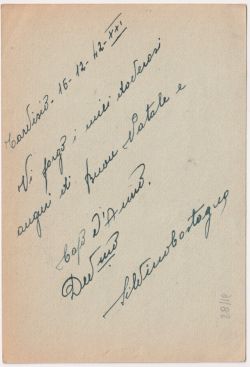 Tarvisio - 16-12-42-XXI
Vi porgo i miei doverosi
auguri di Buon Natale e
Capo d'Anno.
Dev.mo
Silvino Castagna
28/18